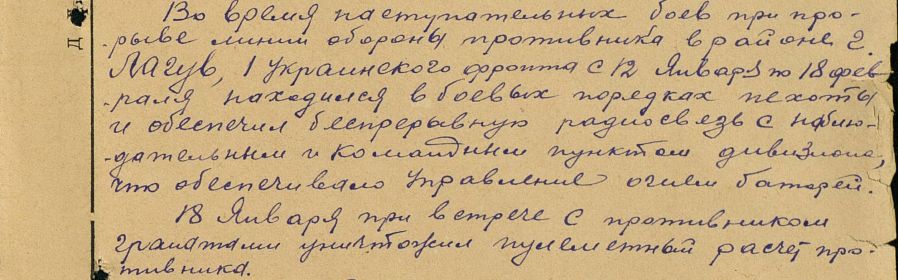 Во время наступательных боев при про-
рыве линии обороны противника в районе г.
Лагув, 1 Украинского фронта с 12 Января по 18 фев
-раля находился в боевых порядках пехоты
и обеспечил беспрерывную радиосвязь с наблю-
-дательным и командным пунктом дивизиона,
что обеспечивало управление огнем батарей.
18 Января при встрече с противником
гранатами уничтожил пулеметный расчет про-
тивника.